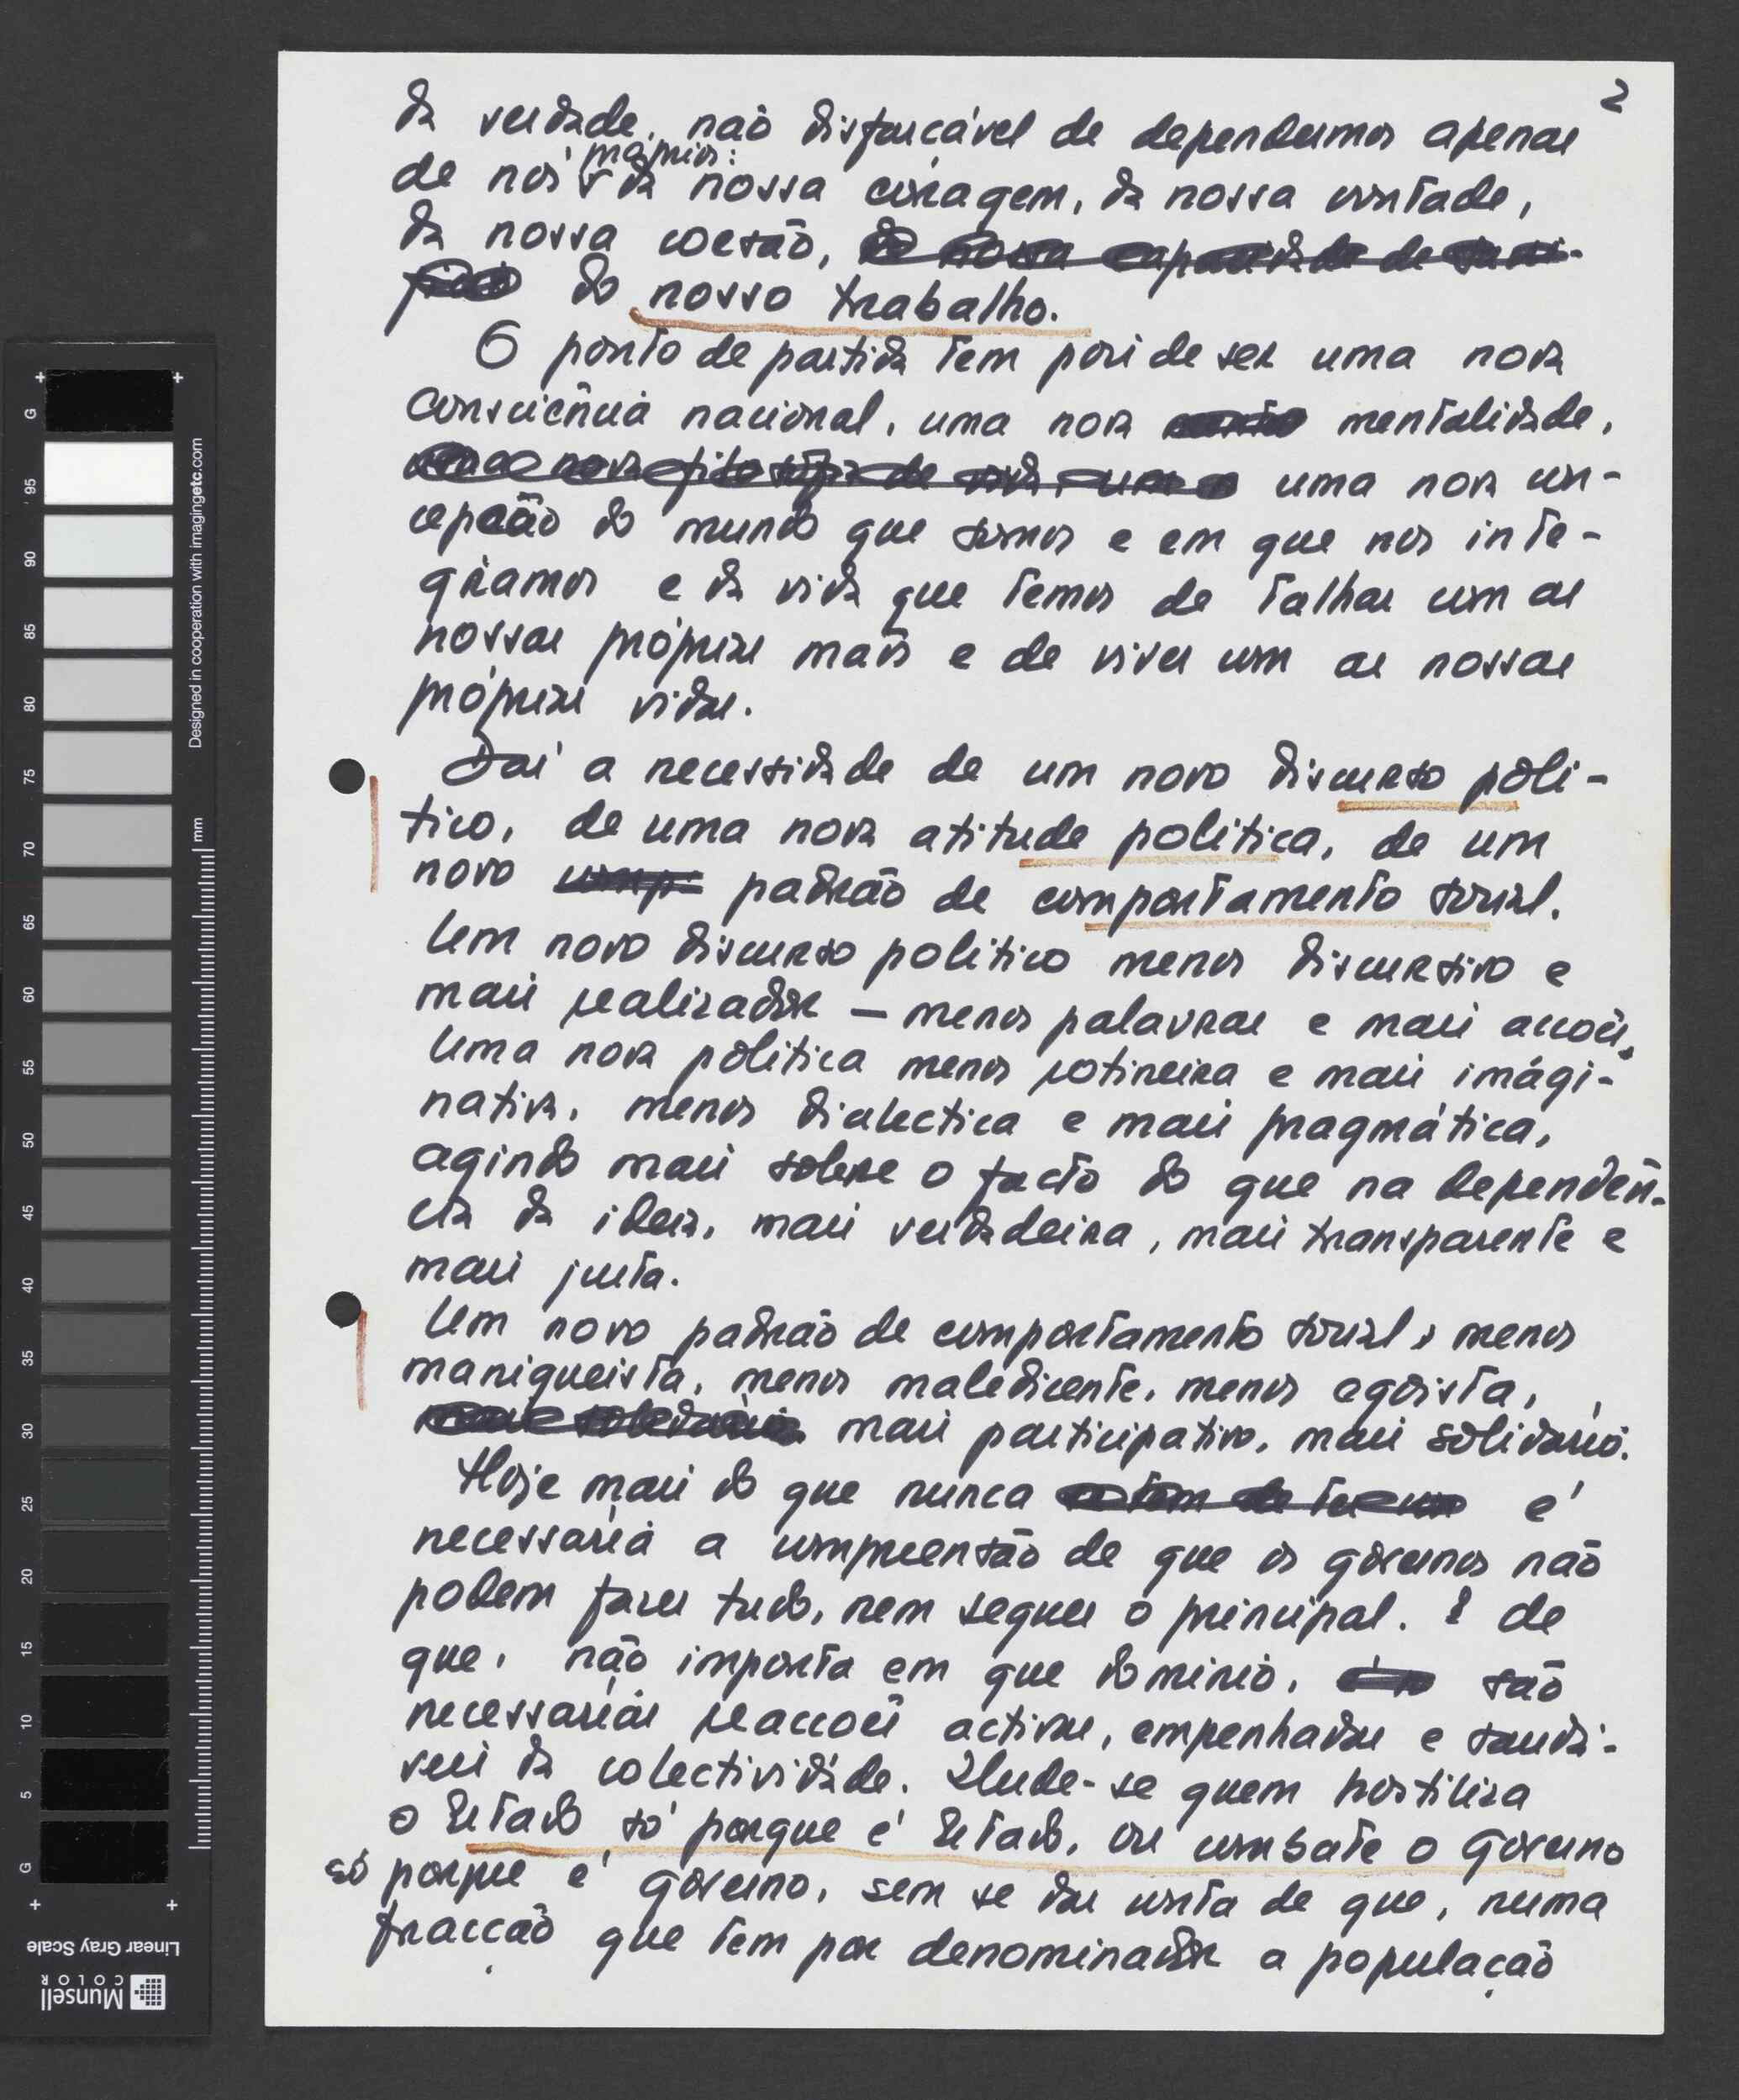 2
da verdade, não disfarçável de dependermos apenas
próprios:
de nós da nossa coragem, da nossa vontade,
da nossa coesão, da nossa capacidade de sacri-
fício do nosso trabalho.
O ponto de partida tem pois de ser uma nova
consciência nacional, uma nova mentalidade,
uma nova filosofia de vida, uma uma nova con-
cepção do mundo que somos e em que nos inte-
gramos e da vida que temos de talhar com as
nossas próprias mãos e de viver com as nossas
próprias vidas.
Daí a necessidade de um novo discurso polí-
tico, de uma nova atitude política, de um
novo comp. padrão de comportamento social.
Um novo discurso politico menos discursivo e
mais realizador – menos palavras e mais acções.
Uma nova política menos rotineira e mais imagi-
nativa, menos dialectica e mais pragmática,
agindo mais sobre o facto do que na dependên-
cia da ideia, mais verdadeira, mais transparente e
mais justa.
Um novo padrão de comportamento social, menos
maniqueista, menos maledicente, menos egoista,
mais solidário mais participativo, mais solidário.
Hoje mais do que nunca é
necessária a compreensão de que os governos não
podem fazer tudo, nem sequer o principal. E de
que, não importa em que domínio, são
necessárias reacções activas, empenhadas e saudá-
veis da colectividade. Ilude-se quem hostiliza
o Estado só porque é Estado, ou combate o Governo
só porque é Governo, sem se dar conta de que, numa
fracção que tem por denominador a população
Designed in cooperation with imagingetc.com
mm
G
95
90
85
80
75
70
65
60
55
50
45
40
35
30
25
20
15
10
5
G
Linear Gray Scale
Munsell
COLOR